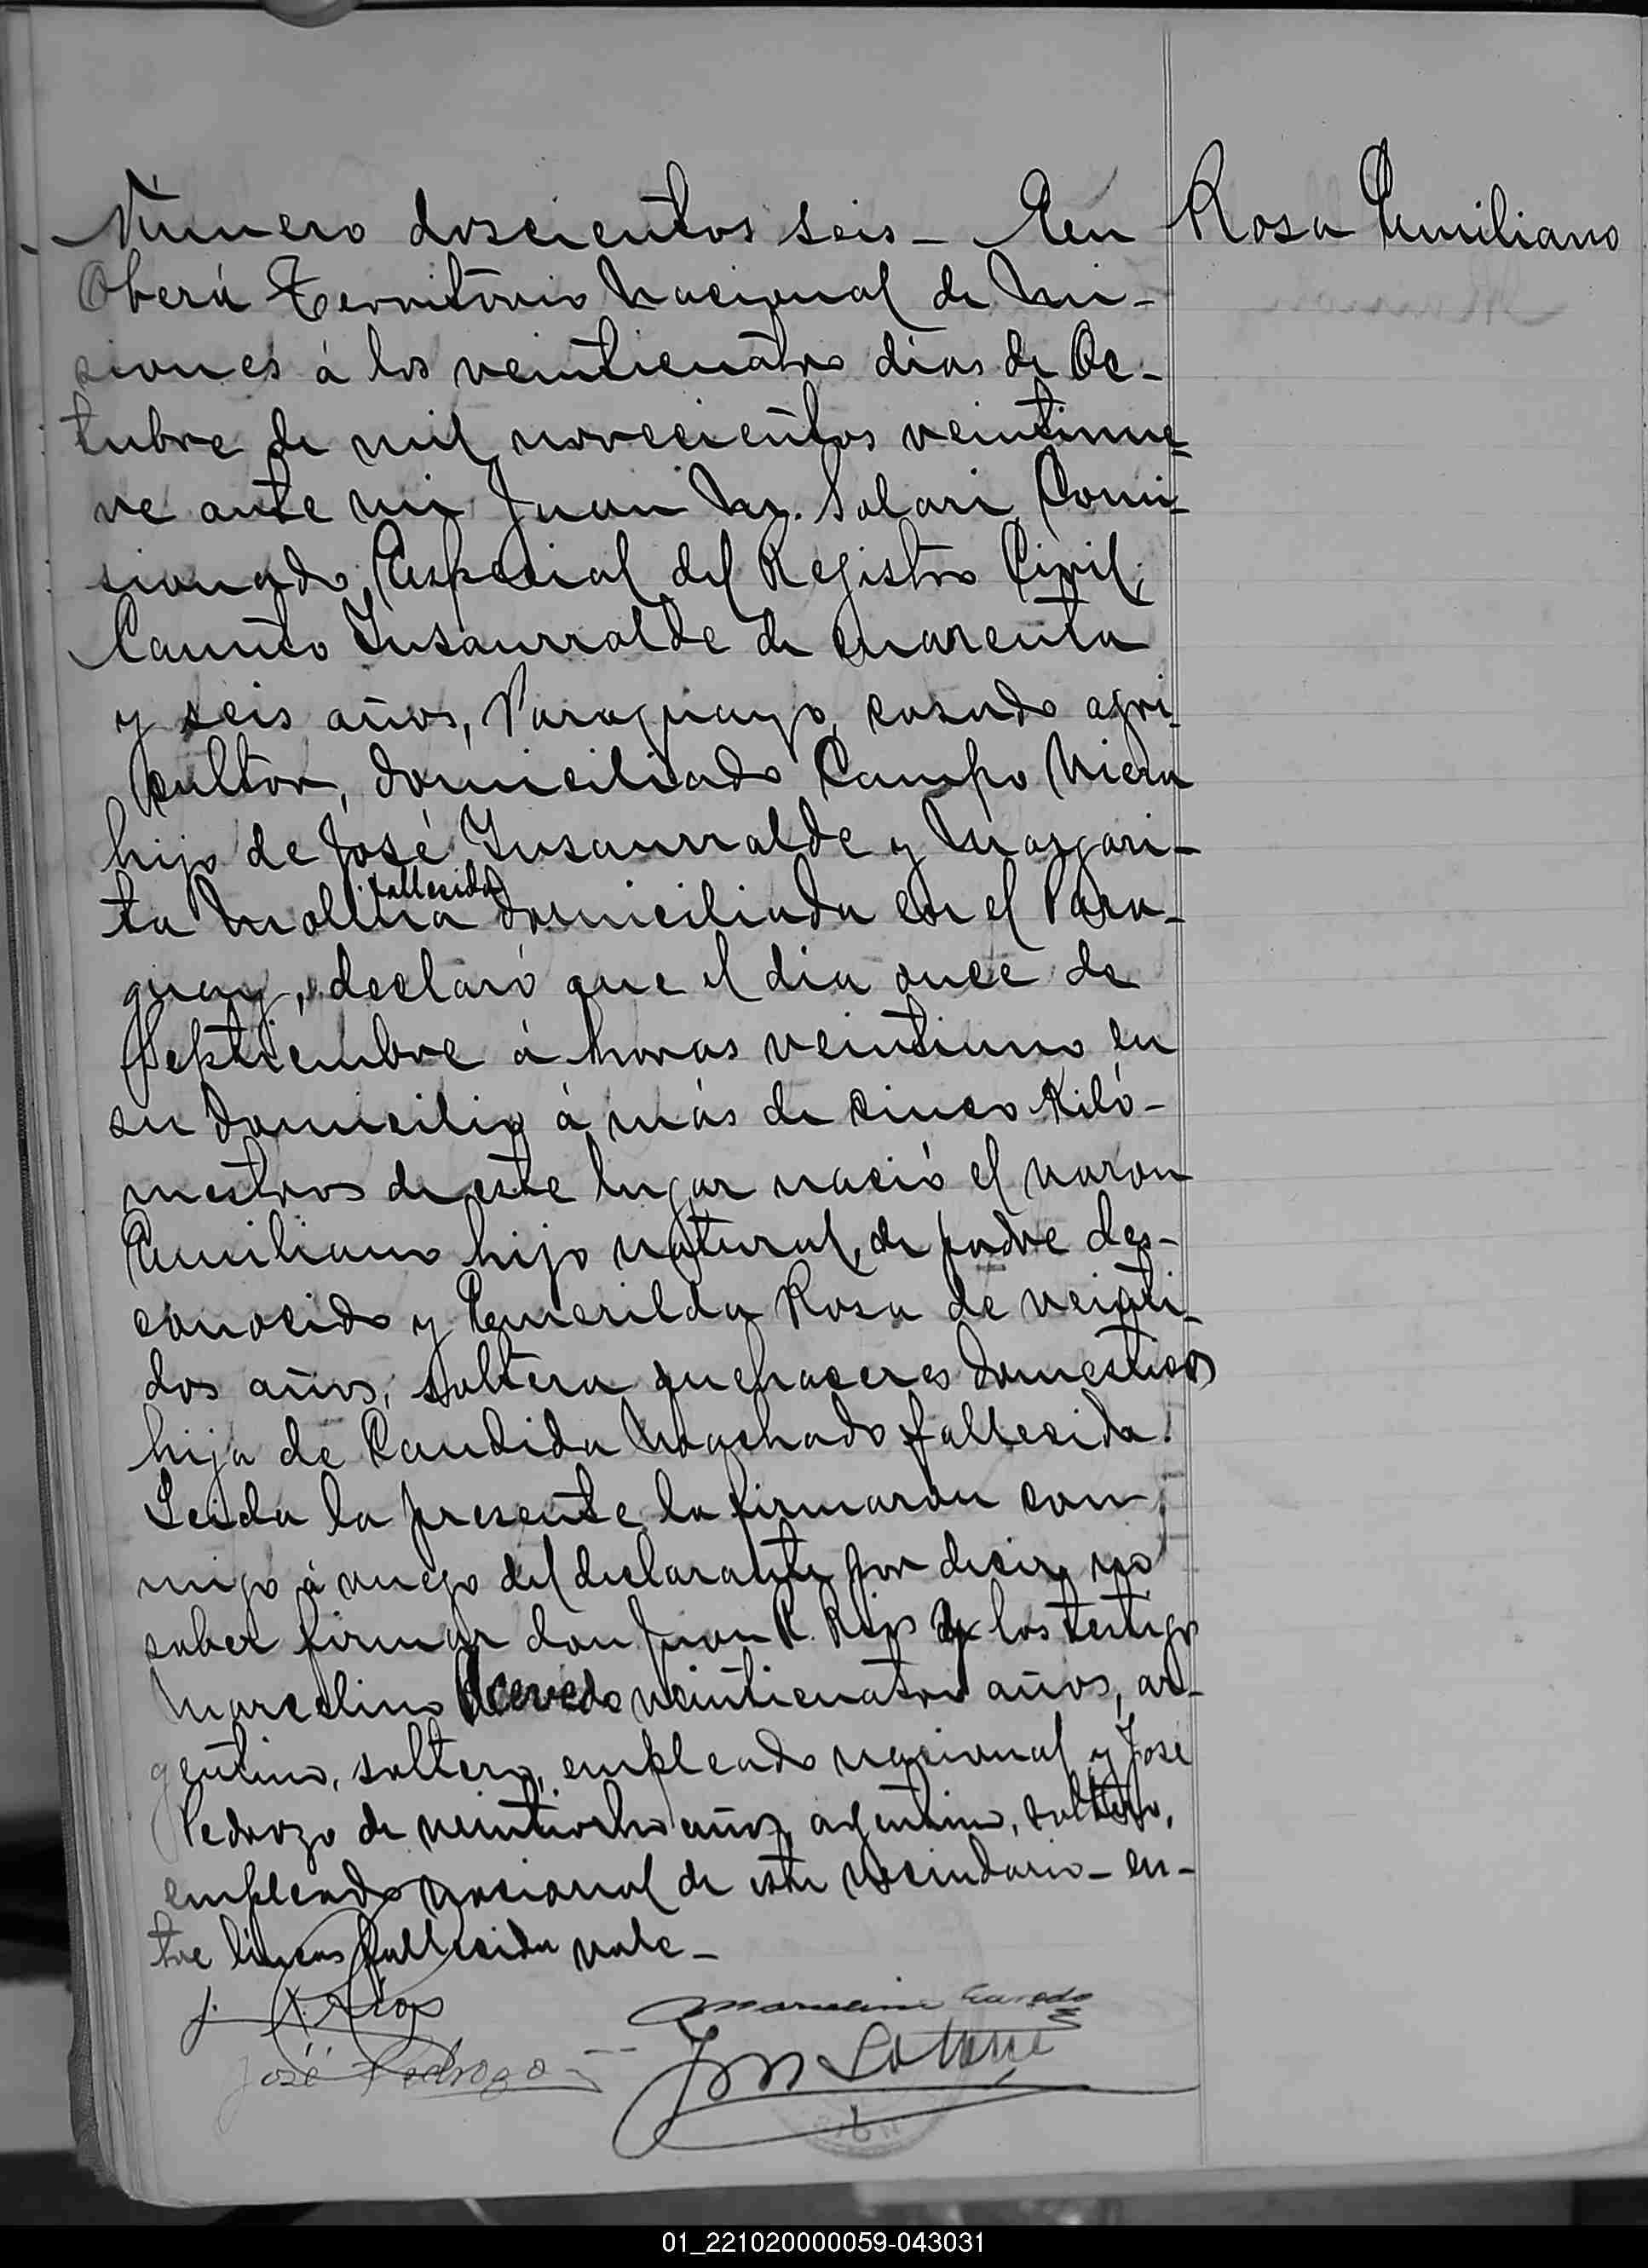 Número doscientos seis - En
Rosa Emiliano
Oberá Territorio Nacional de Mi-
siones á los veinticuatro dias de Oc-
tubre de mil novecientos veintinue-
ve ante mi Juan M. Solari, Comi-
sionado Especial del Registro Civil,
Canuto Insaurralde de cuarenta
y seis años, Paraguayo, casado agri-
cultor, domiciliado Campo Viera
hijo de José Insaurralde y Margari-
fallecida
ta Molina domiciliada en el Para-
guay, declaró que el dia once de
Septiembre á horas veintiuno en
su domicilio á más de cinco Kiló-
mestros de este lugar nació el varon
Emiliano hijo natural, de padre des-
conocido y Emerilda Rosa de veinti-
dos años, soltera quehaceres domesticos
hija de Candida Machado fallecida.
Leida la presente la firmaron con-
migo á ruego del declarante por decir no
saber firmar don Juan R. Rios y los testigos
Marcelino Acevedo veinticuatro años, ar-
gentino, soltero, empleado nacional y José
Pedrozo de veintiocho años, argentino, soltero,
empleado nacional de este vecindario - en-
tre lineas fallecida vale -
J. R. Rios
Marcelino Acevedo
José Pedrozo
01_221020000059-043031